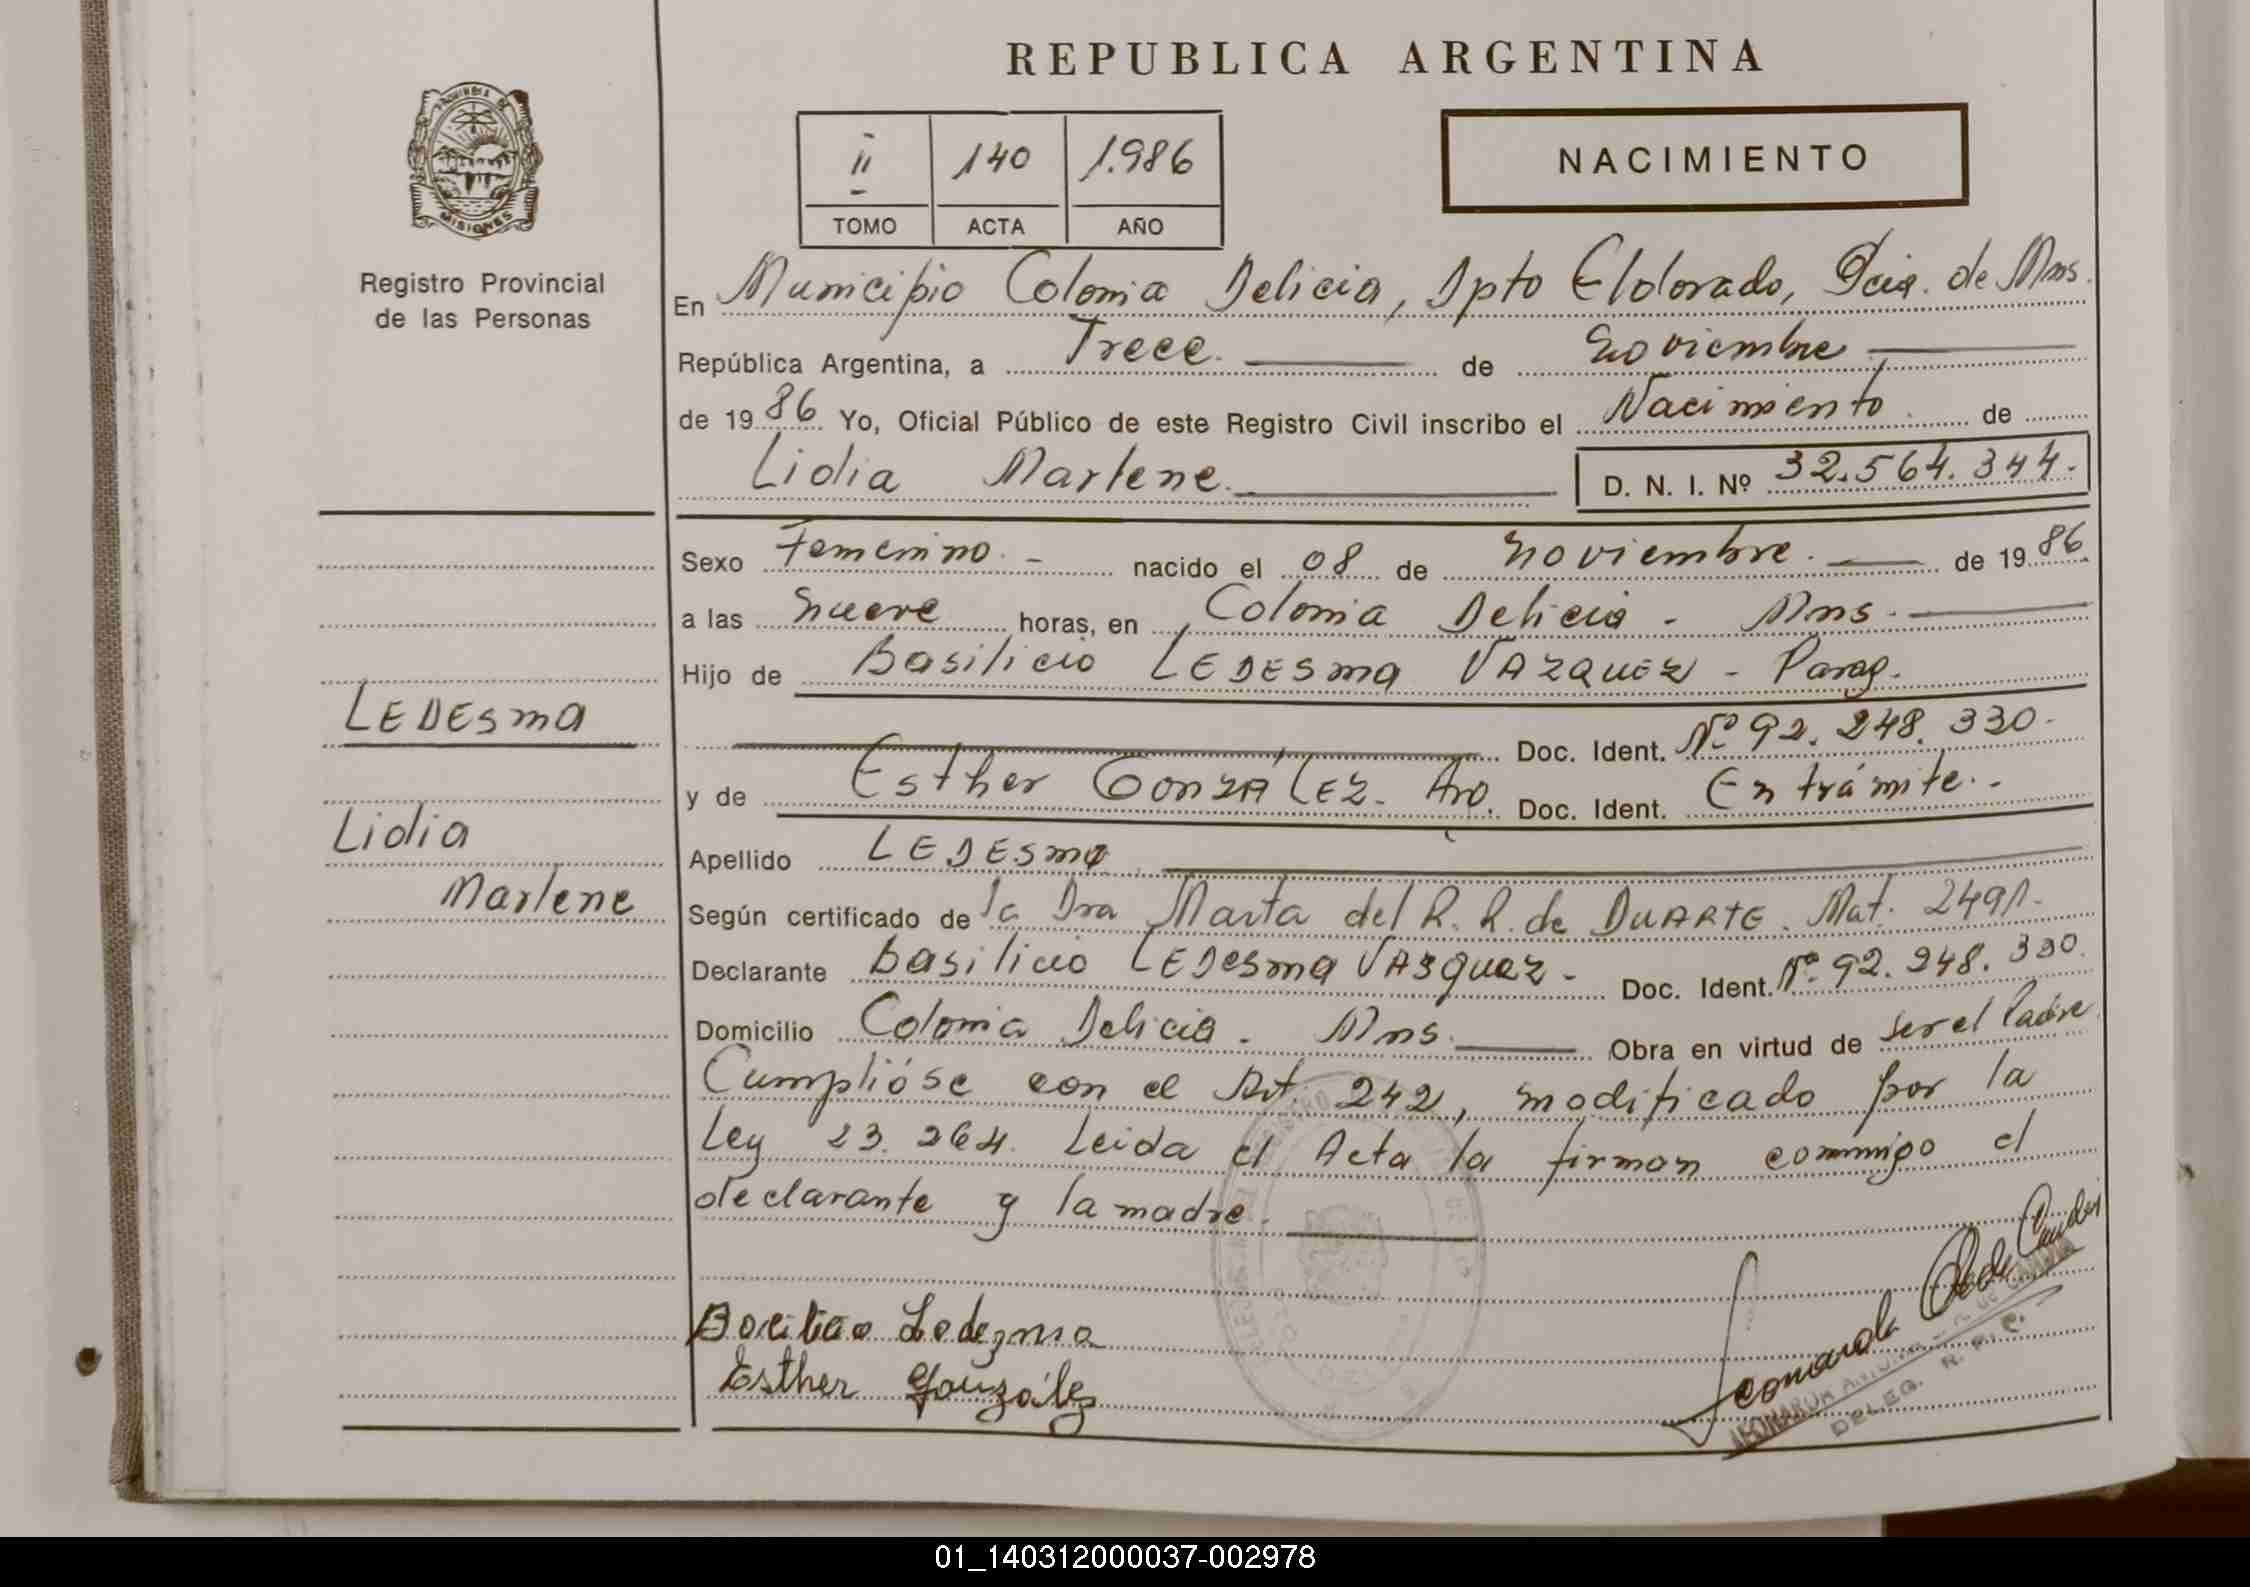 REPUBLICA ARGENTINA
PROVINCIA DE
MISIONES
Registro Provincial
de las Personas
II 140 1.986
TOMO ACTA AÑO
NACIMIENTO
En Municipio Colonia Delicia, Dpto Eldorado, Pcia. de Mns.
República Argentina, a Trece. de Noviembre
de 1986 Yo, Oficial Público de este Registro Civil inscribo el Nacimiento de
Lidia Marlene. D. N. I. Nº 32.564.344.
Sexo Femenino. - nacido el 08 de Noviembre. de 1986.
a las Nueve horas, en Colonia Delicia - Mns.
Hijo de Basilicio LEDESMA VAZQUEZ - Parag.
Doc. Ident. Nº 92.248.330-
y de Esther GONZÁLEZ. Arg. Doc. Ident. En trámite.-
Apellido LEDESMA
Según certificado de la Dra Marta del R. R. de DUARTE. Mat. 2491.
Declarante Basilicio LEDESMA VASQUEZ - Doc. Ident. Nº 92.248.330.
Domicilio Colonia Delicia. Mns. Obra en virtud de ser el Padre
Cumplióse con el Art. 242, modificado por la
Ley 23.264. Leida el Acta la firman conmigo el
declarante y la madre.
LEDESMA
Lidia
Marlene
Bacilicio Ledezma
Esther González
DELEG. R. P. C.
01_140312000037-002978